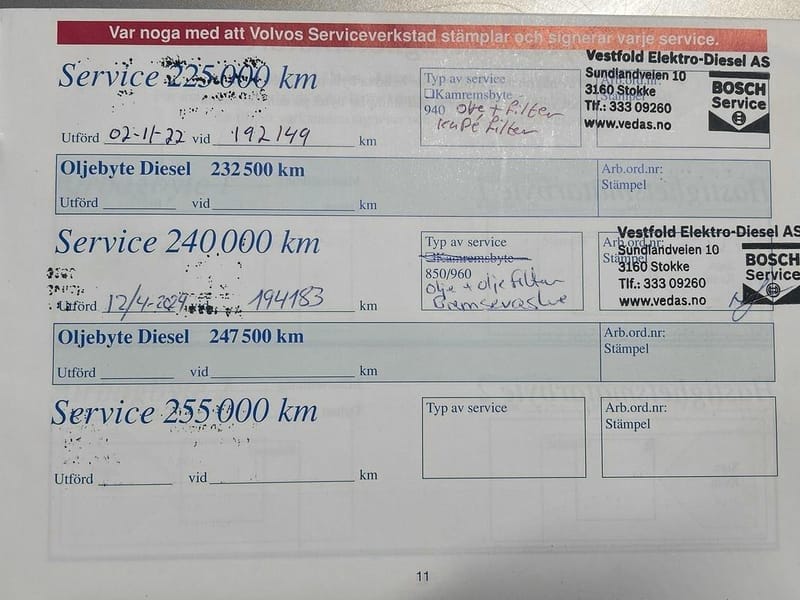 Var noga med att Volvos Serviceverkstad stämplar och signerar varje service.
Service 225 000 km
Utförd 02-11-22 vid 192149 km
Typ av service
Kamremsbyte
940 olje + filter
kupé filter
Arb.ord.nr:
Stämpel
Vestfold Elektro-Diesel AS
Sundlandveien 10
3160 Stokke
Tlf.: 333 09260
www.vedas.no
BOSCH
Service
Oljebyte Diesel 232 500 km
Utförd vid km
Arb.ord.nr:
Stämpel
Service 240 000 km
Utförd 12/4-2024 194183 km
Typ av service
Kamremsbyte
850/960
olje + olje filter
Bremsevæske
Arb.ord.nr:
Stämpel
Vestfold Elektro-Diesel AS
Sundlandveien 10
3160 Stokke
Tlf.: 333 09260
www.vedas.no
BOSCH
Service
Oljebyte Diesel 247 500 km
Utförd vid km
Arb.ord.nr:
Stämpel
Service 255 000 km
Utförd vid km
Typ av service
Arb.ord.nr:
Stämpel
11